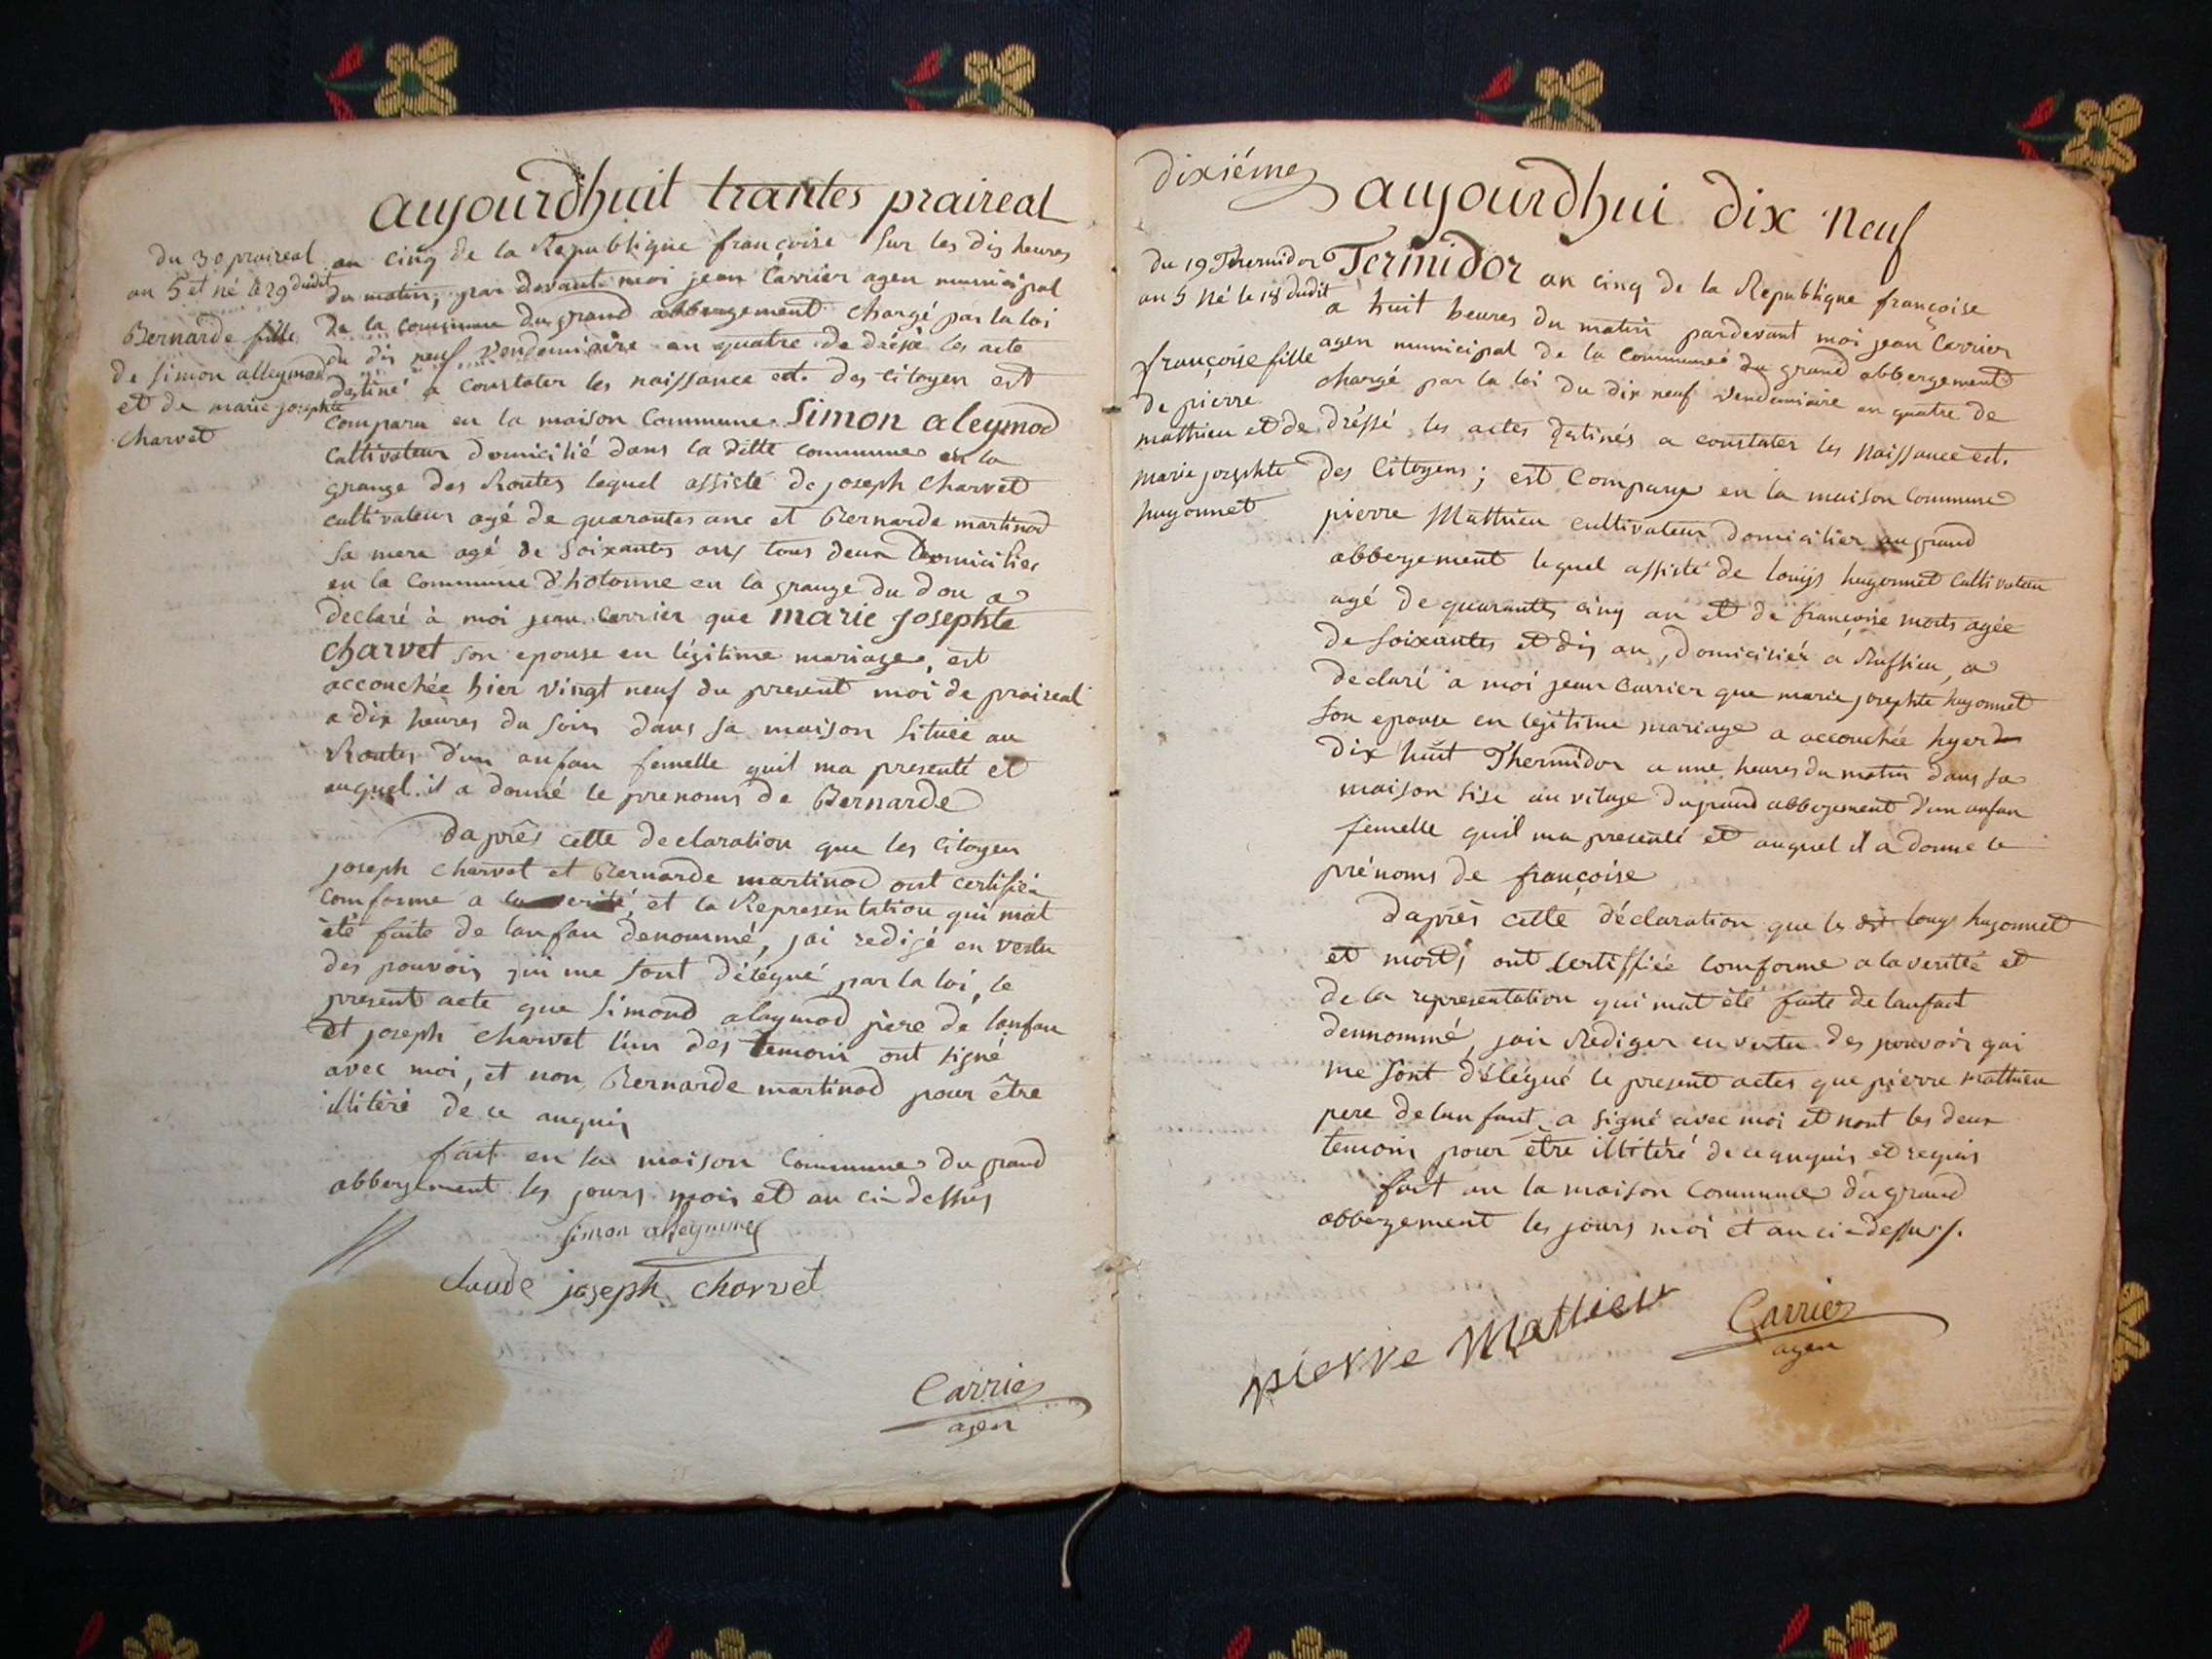 aujourdhuit trantes praireal
du 30 praireal
an 5 et né le 29 dudit
Bernarde fille
de Simon alleymod
et de marie josephte
Charvet
an cinq de la Republique françoise sur les dis heures
du matin, par devant moi jean Carrier agen municipal
de la commune du grand abbergement chargé par la loi
du dis neuf Vendemiaire an quatre de drésé les acte
destiné a Constater les naissance ect. des Citoyen est
Comparu en la maison Commune Simon aleymod
Cultivateur domicilié dans la ditte commune en la
grange des Routes lequel assisté de joseph Charvet
cultivateur agé de quarantes anc et Bernarde martinod
sa mere agé de soixantes ans tous deux Domicilies
en la Commune d'hotonne en la grange du dou a
declaré à moi jean Carrier que marie josephte
Charvet son epouse en légitime mariage, est
accouchée hier vingt neuf du present moi de praireal
a dix heures du soir dans sa maison située au
Routes d'un anfan femelle quil ma presenté et
auquel il a donné le prenoms de Bernarde
daprês cette declaration que les Citoyen
joseph Charvet et Bernarde martinod ont certifiée
comforme a la verité, et la Representation qui mat
été faite de lanfan denommé, jai redigé en vertu
des pouvoirs qui me sont délégué par la loi, le
present acte que Simond alaymod père de lanfan
et joseph Charvet l'un des temoin ont signé
avec moi, et non Bernarde martinod pour être
illitéré de ce anquis
fait en la maison Commune du grand
abbergement les jours mois et an ci dessus
Simon alleymod
claude joseph charvet
Carrier
agen
dixiéme
aujourdhui dix neuf
du 19 Thermidor
an 5 Né le 18 dudit
françoise fille
de pierre
mathieu et de
marie josephte
hugonnet
Termidor an cinq de la Republique françoise
a huit heures du matin pardevant moi jean Carrier
agen municipal de la Communeé du grand abbergement
chargé par la loi du dix neuf Vendemiaire an quatre de
dréssé les actes destinés a constater les Naissance ect.
des Citoyens; est Comparu en la maison Commune
pierre Mathieu cultivateur domicilier au grand
abbergement lequel assisté de louijs hugonnet Cultivateur
agé de quarantes cinq an et de françoise morts agée
de soixantes et dis an, domiciliér a Ruffieu, a
declaré a moi jean Carrier que marie josephte hugonnet
son epouse en legitime mariage a accouchée hyerd
dix huit Thermidor a une heures du matin dans sa
maison sise au vilage du grand abbergement d'un anfan
femelle quil ma presenté et auquel il a donne le
prénoms de françoise
daprès cette déclaration que les louys hugonnet
et morts ont certiffiée comforme a la veritée et
de la representation qui mat été faite de lanfant
dennommé, jai Rediger en vertu des pouvoir qui
me sont délégué le present actes que pierre mathieu
pere de lanfant a signé avec moi et nont les deux
temoin pour être illitéré de ce anquis et requis
fait an la maison Commune du grand
abbergement les jours moi et an ci dessus.
pierre Mathieu
Carrier
agen